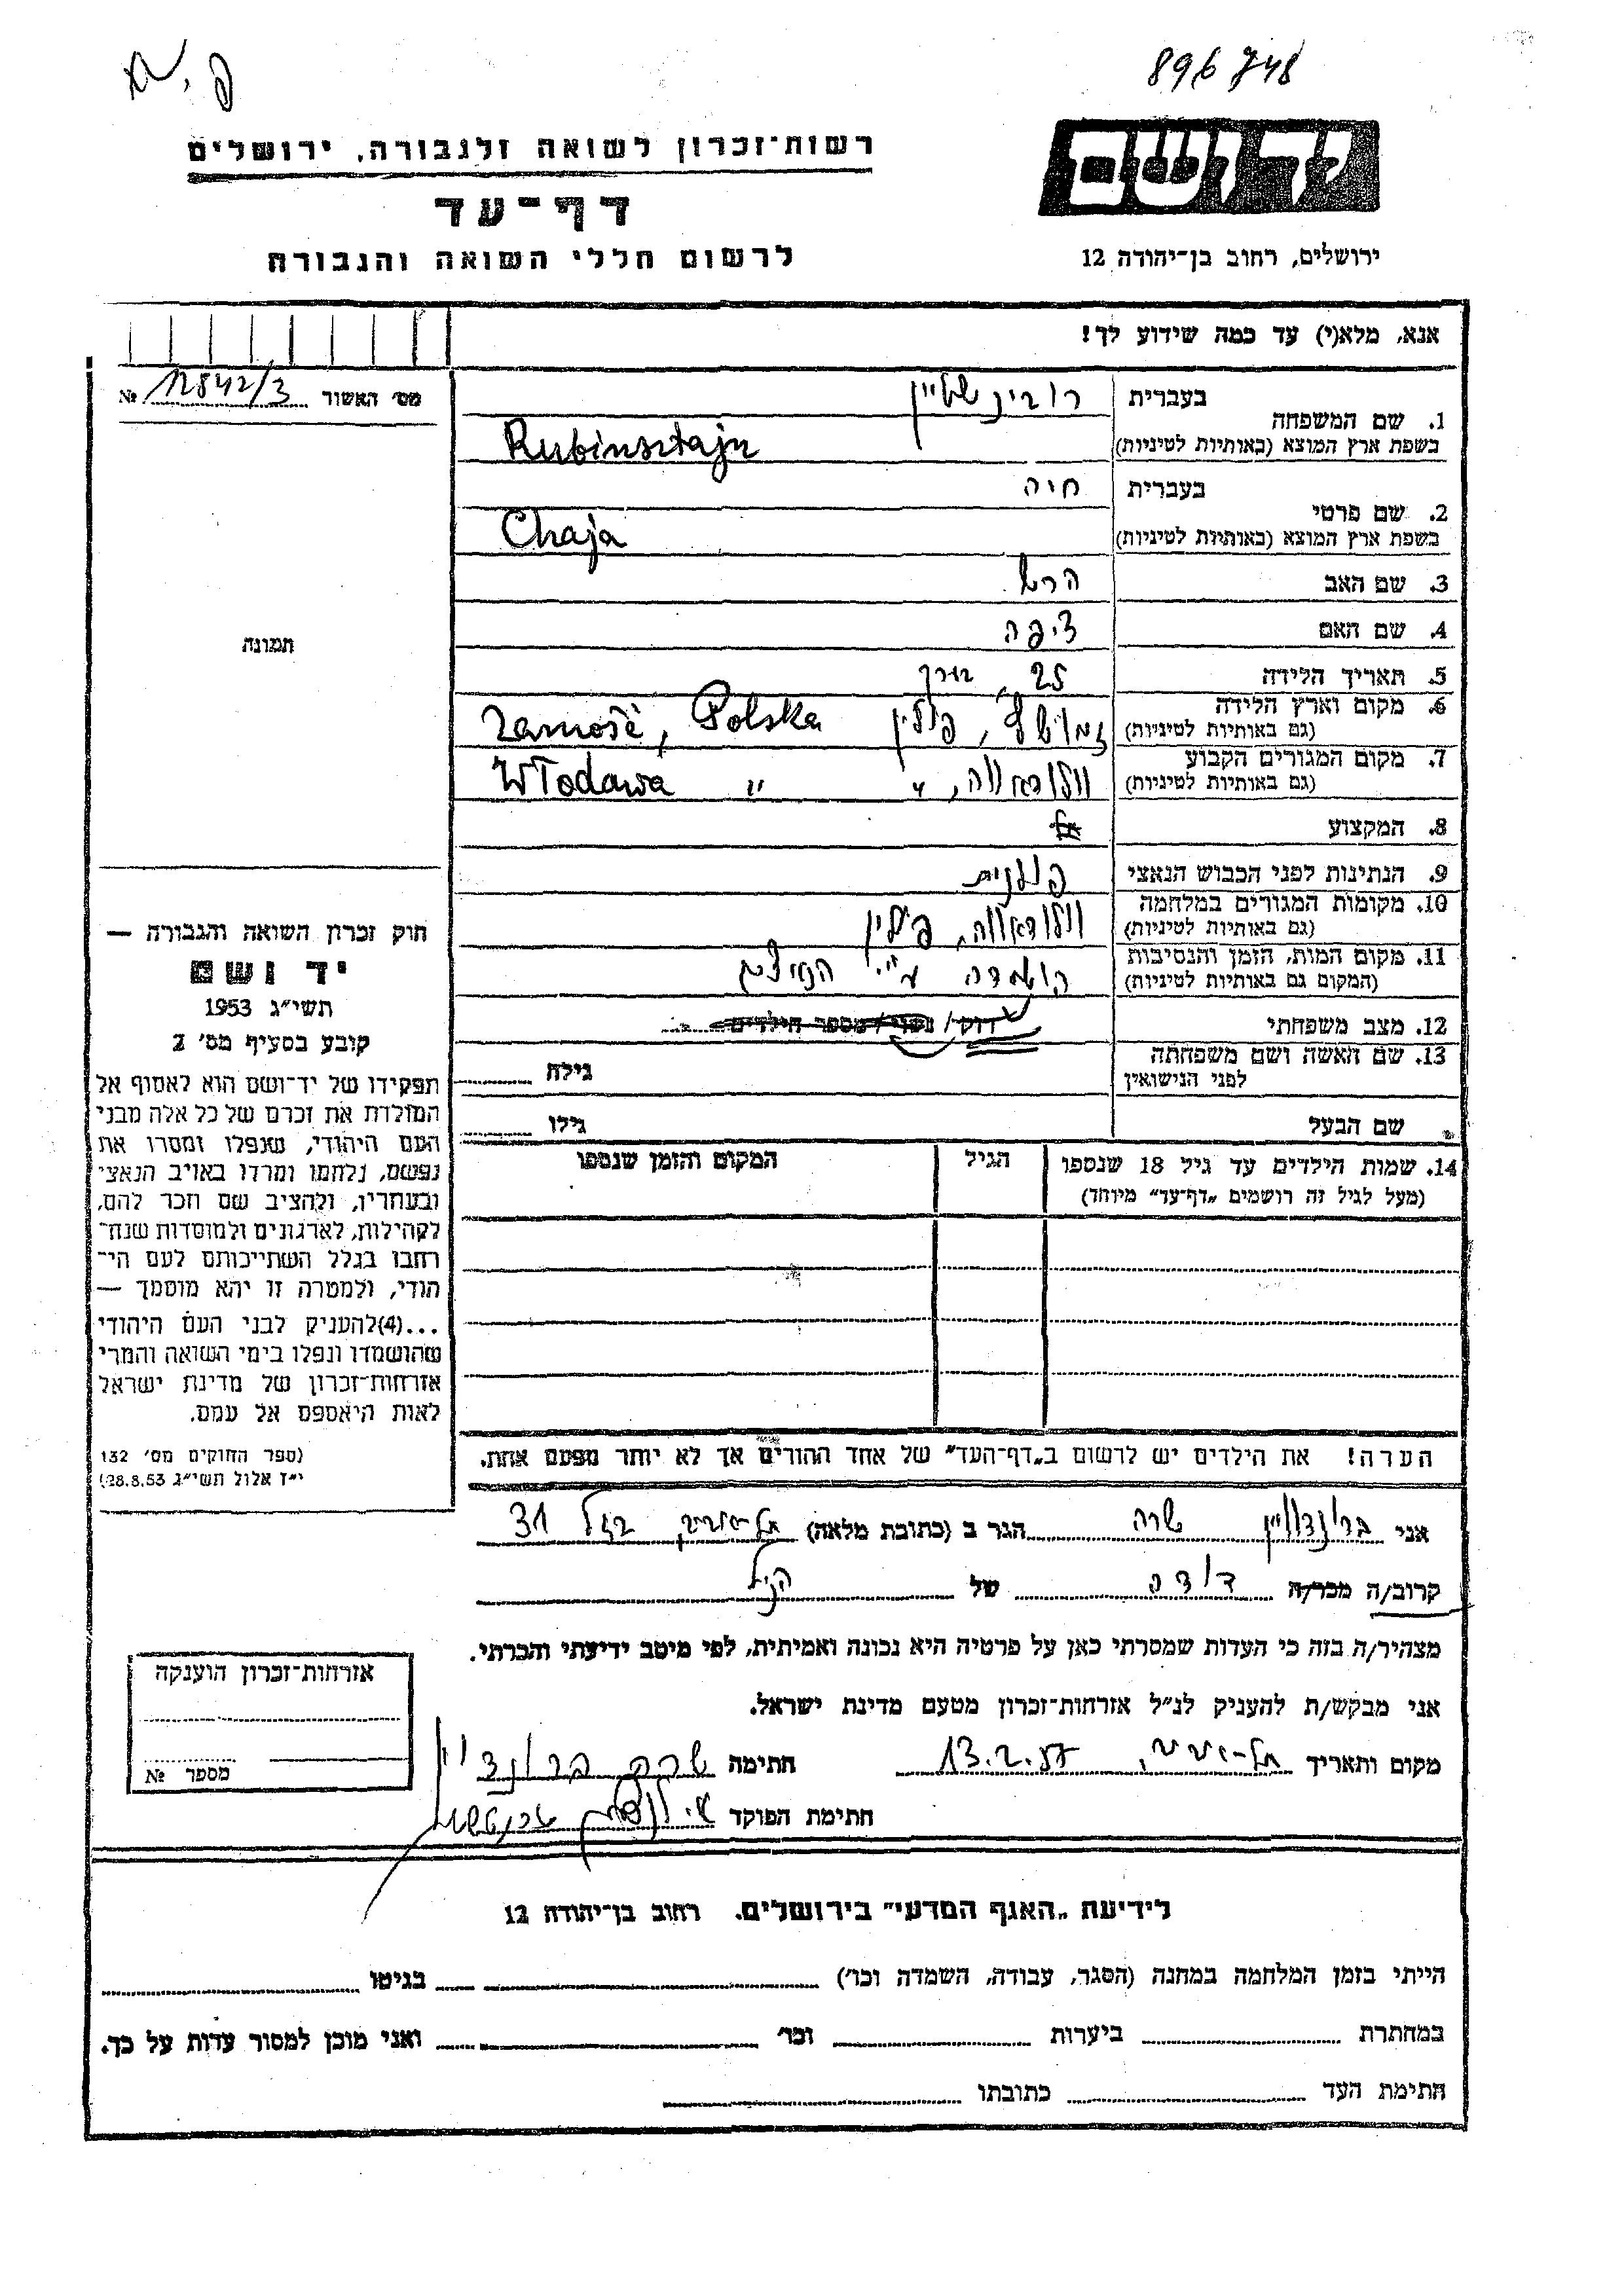 896748
פ. א.
יד ושם
רשות־זכרון לשואה ולגבורה, ירושלים
דף־עד
ירושלים, רחוב בן־יהודה 12
לרשום חללי השואה והגבורה
אנא, מלא(י) עד כמה שידוע לך!
מס׳ האשור 12842/3 №
תמונה
1. שם המשפחה
בעברית רובינשטיין
בשפת ארץ המוצא (באותיות לטיניות) Rubinsztajn
2. שם פרטי
בעברית חיה
בשפת ארץ המוצא (באותיות לטיניות) Chaja
3. שם האב הרש
4. שם האם ציפה
5. תאריך הלידה 25, בערך
6. מקום וארץ הלידה
(גם באותיות לטיניות) זמושץ, פולין Zamość, Polska
7. מקום המגורים הקבוע
(גם באותיות לטיניות) וולודאווה, " Włodawa "
8. המקצוע
9. הנתינות לפני הכבוש הנאצי פולנית
10. מקומות המגורים במלחמה
(גם באותיות לטיניות) וולודאווה, פולין
11. מקום המות, הזמן והנסיבות
(המקום גם באותיות לטיניות) הושמדה ע"י הנאצים
12. מצב משפחתי רווק/ נשוי/ מספר הילדים
13. שם האשה ושם משפחתה
לפני הנישואין גילה
שם הבעל גילו
14. שמות הילדים עד גיל 18 שנספו הגיל המקום והזמן שנספו
(מעל לגיל זה רושמים „דף־עד” מיוחד)
חוק זכרון השואה והגבורה —
יד ושם
תשי״ג 1953
קובע בסעיף מס׳ 2
תפקידו של יד־ושם הוא לאסוף אל
המולדת את זכרם של כל אלה מבני
העם היהודי, שנפלו ומסרו את
נפשם, נלחמו ומרדו באויב הנאצי
ובעוזריו, ולהציב שם וזכר להם,
לקהילות, לארגונים ולמוסדות שנח־
רבו בגלל השתייכותם לעם הי־
הודי, ולמטרה זו יהא מוסמך —
...(4)להעניק לבני העם היהודי
שהושמדו ונפלו בימי השואה והמרי
אזרחות־זכרון של מדינת ישראל
לאות היאספם אל עמם.
(ספר החוקים מס׳ 132
י״ז אלול תשי״ג 28.8.53)
הערה! את הילדים יש לרשום ב„דף־העד” של אחד ההורים אך לא יותר מפעם אחת.
אני שרה הגר ב (כתובת מלאה) תל-אביב 31
קרוב/ה מכר/ה דודה של הנ"ל
מצהיר/ה בזה כי העדות שמסרתי כאן על פרטיה היא נכונה ואמיתית, לפי מיטב ידיעתי והכרתי.
אני מבקש/ת להעניק לנ״ל אזרחות־זכרון מטעם מדינת ישראל.
מקום ותאריך תל-אביב, 13.2.57 חתימה שרה
חתימת הפוקד
אזרחות־זכרון הוענקה
מספר №
לידיעת „האגף המדעי” בירושלים. רחוב בן־יהודה 12
הייתי בזמן המלחמה במחנה (הסגר, עבודה, השמדה וכו׳) בגיטו
במחתרת ביערות וכו׳ ואני מוכן למסור עדות על כך.
חתימת העד כתובתו